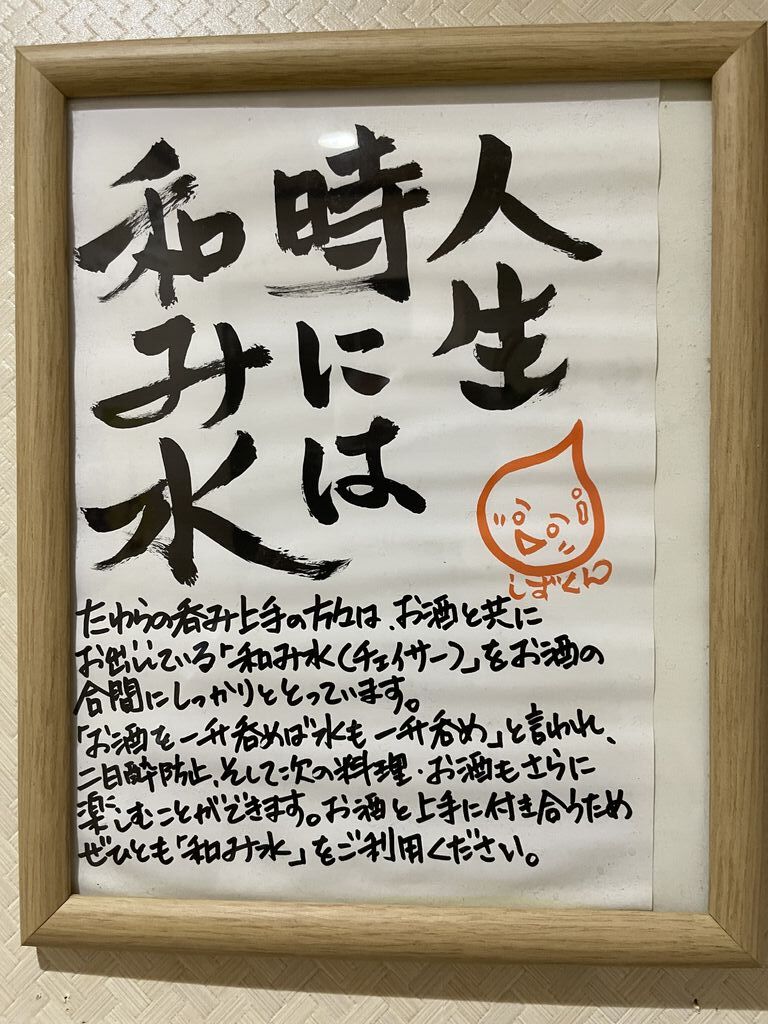 人生
時には
和み水
しずくん
たわらの呑み上手の方々は、お酒と共に
お出ししている「和み水(チェイサー)」をお酒の
合間にしっかりととっています。
「お酒を一升呑めば水も一升呑め」と言われ、
二日酔防止、そして次の料理・お酒もさらに
楽しむことができます。お酒と上手に付き合うため
ぜひとも「和み水」をご利用ください。